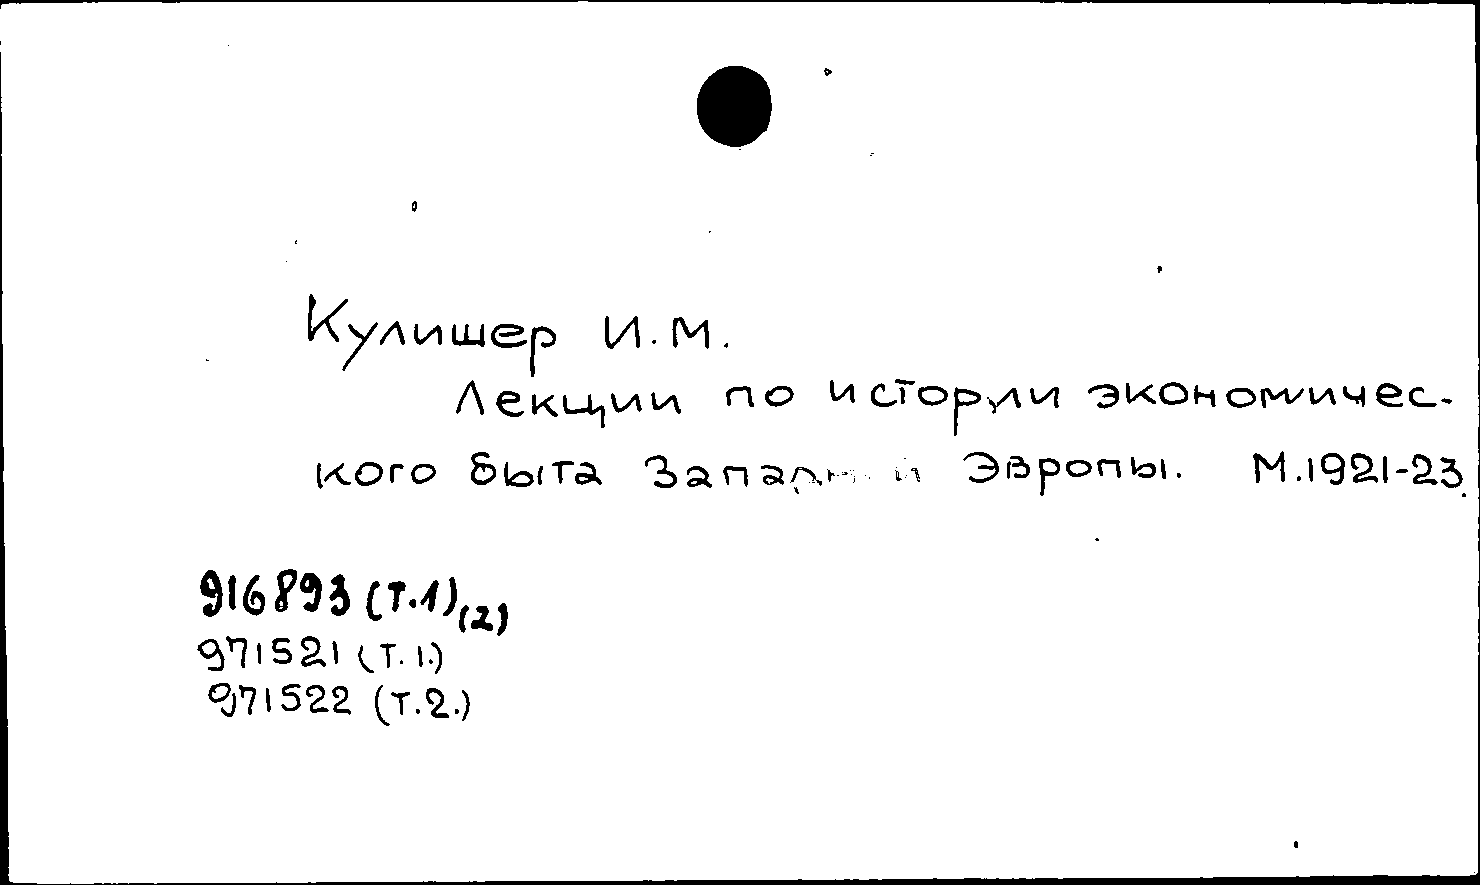 Кулишер И.М.
Лекции по истории экономичес-
кого быта Западной Эвропы. М.1921-23.
916893 (т.1) (2)
971521 (т.1.)
971522 (т.2.)